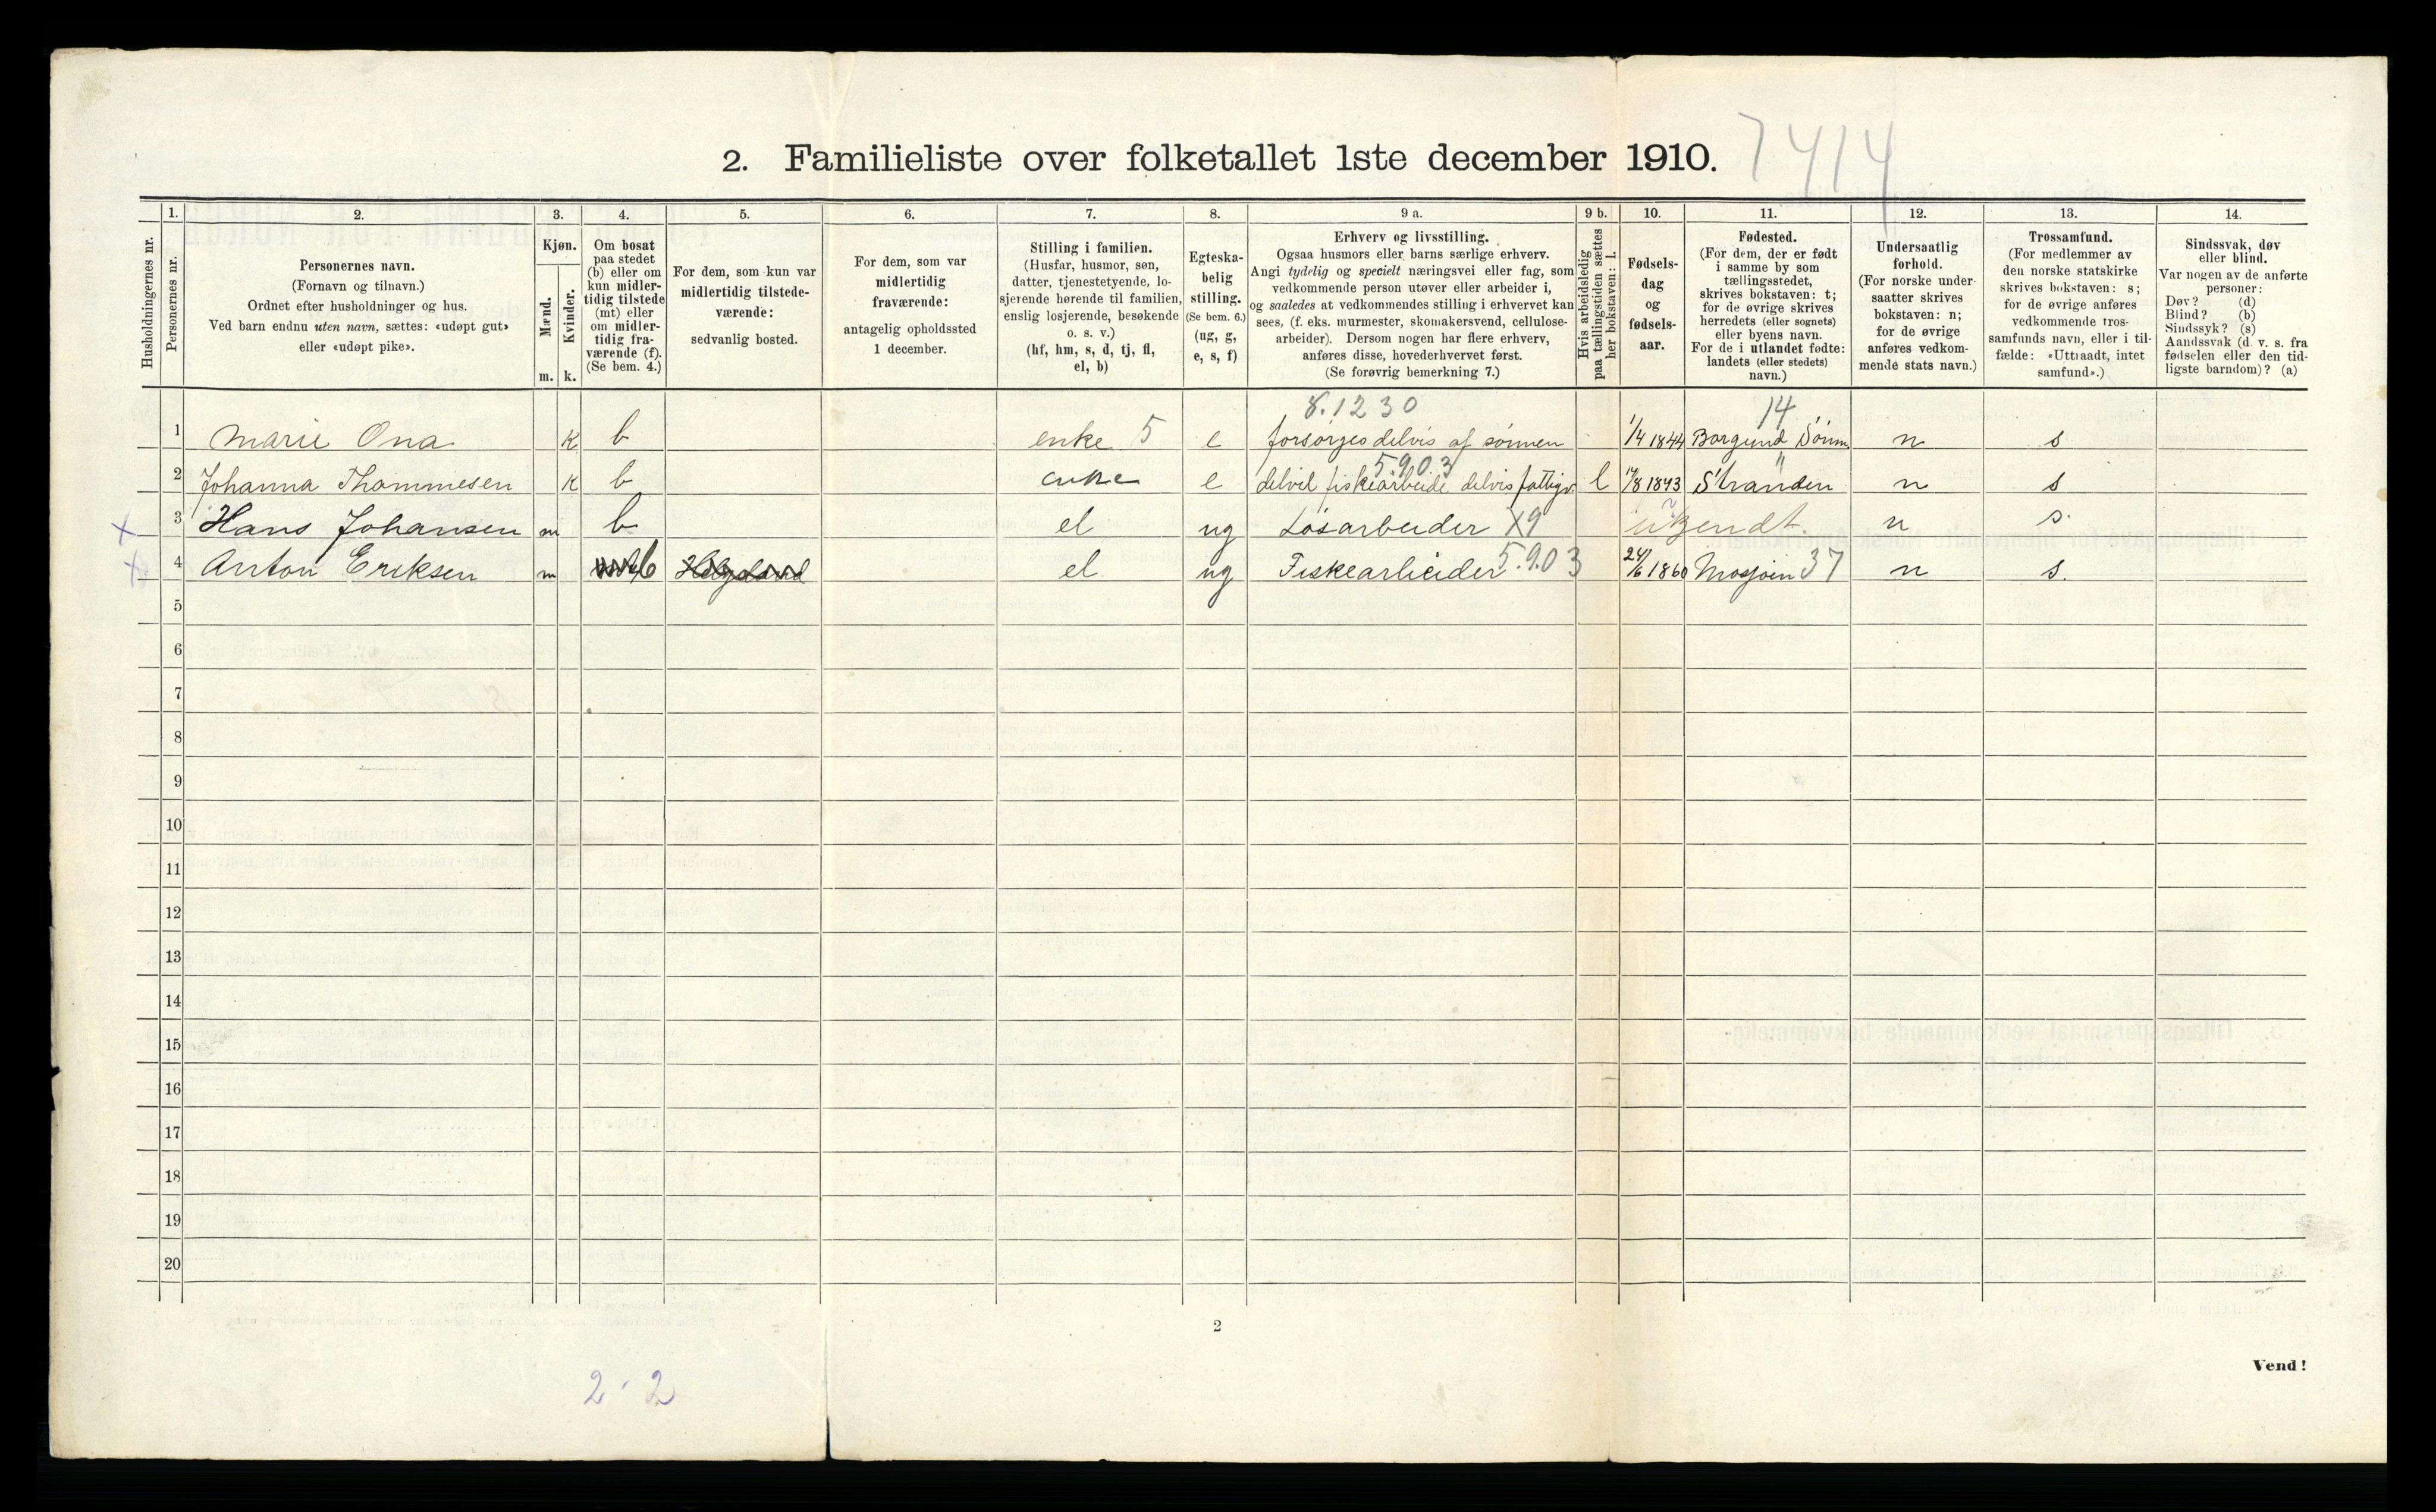 2. Familieliste over folketallet 1ste december 1910. 7414
Husholdningernes nr.
1.
Personernes nr.
2.
Personernes navn.
(Fornavn og tilnavn.)
Ordnet efter husholdninger og hus.
Ved barn endnu uten navn, sættes: «udøpt gut»
eller «udøpt pike».
3.
Kjøn.
Mænd.
Kvinder.
m. k.
4.
Om bosat
paa stedet
(b) eller om
kun midler-
tidig tilstede
(mt) eller
om midler-
tidig fra-
værende (f).
(Se bem. 4.)
5.
For dem, som kun var
midlertidig tilstede-
værende:
sedvanlig bosted.
6.
For dem, som var
midlertidig
fraværende:
antagelig opholdssted
1 december.
7.
Stilling i familien.
(Husfar, husmor, søn,
datter, tjenestetyende, lo-
sjerende hørende til familien,
enslig losjerende, besøkende
o. s. v.)
(hf, hm, s, d, tj, fl,
el, b)
8.
Egteska-
belig
stilling.
(Se bem. 6.)
(ug, g,
e, s, f)
9 a.
Erhverv og livsstilling.
Ogsaa husmors eller barns særlige erhverv.
Angi tydelig og specielt næringsvei eller fag, som
vedkommende person utøver eller arbeider i,
og saaledes at vedkommendes stilling i erhvervet kan
sees, (f. eks. murmester, skomakersvend, cellulose-
arbeider). Dersom nogen har flere erhverv,
anføres disse, hovederhvervet først.
(Se forøvrig bemerkning 7.)
9 b.
Hvis arbeidsledig
paa tællingstiden sættes
her bokstaven: l.
10.
Fødsels-
dag
og
fødsels-
aar.
11.
Fødested.
(For dem, der er født
i samme by som
tællingsstedet,
skrives bokstaven: t;
for de øvrige skrives
herredets (eller sognets)
eller byens navn.
For de i utlandet fødte:
landets (eller stedets)
navn.)
12.
Undersaatlig
forhold.
(For norske under-
saatter skrives
bokstaven: n;
for de øvrige
anføres vedkom-
mende stats navn.)
13.
Trossamfund.
(For medlemmer av
den norske statskirke
skrives bokstaven: s;
for de øvrige anføres
vedkommende tros-
samfunds navn, eller i til-
fælde: «Uttraadt, intet
samfund».)
14.
Sindssvak, døv
eller blind.
Var nogen av de anførte
personer:
Døv? (d)
Blind? (b)
Sindssyk? (s)
Aandssvak (d. v. s. fra
fødselen eller den tid-
ligste barndom)? (a)
8.1230 14
1 Marie Ona k b enke 5 e forsørges delvis af sønnen 1/4 1844 Borgund Sönm. n s
5.903 "
2 Johanna Thommesen k b enke e delvis fiskearbeide delvis fattigv. l 1843 Stranden n s
x 3 Hans Johansen m b el ug Løsarbeider X9 ukjendt n s.
x 4 Anton Eriksen m b Helgeland el ug Fiskearbeider 5.903 24/6 1860 Mosjøen 37 n s.
5
6
7
8
9
10
11
12
13
14
15
16
17
18
19
20
2
Vend!
2 · 2